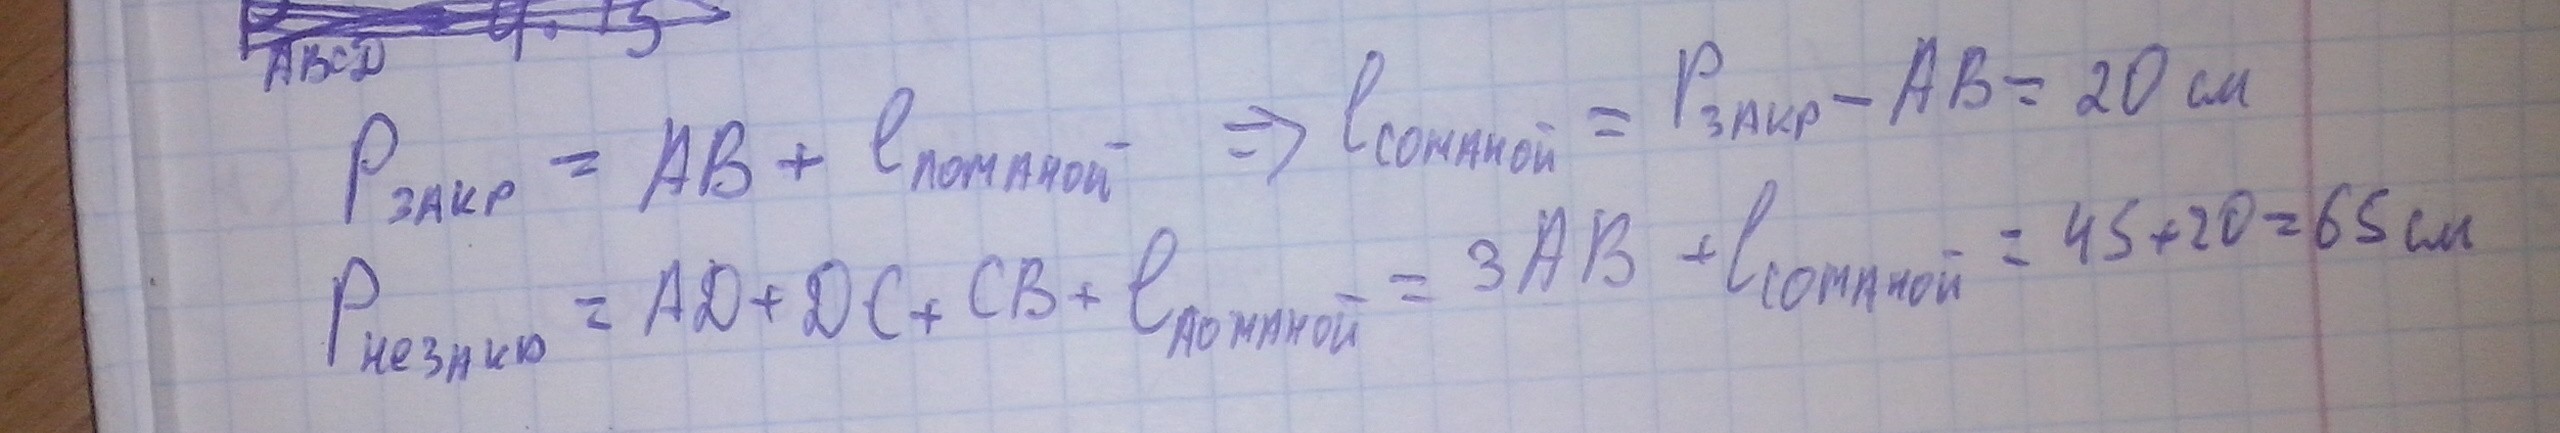 ABCD 4. 15
Pзакр = AB + lломаной ⇒ lломаной = Pзакр − AB = 20 см
Pнезакр = AD + DC + CB + lломаной = 3AB + lломаной = 45 + 20 = 65 см